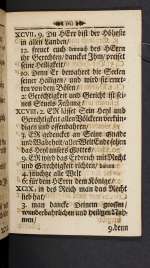 XCVII. 9. Du HErr bist der Höheste
in allen Landen/
12. freuet euch des HErrn
ihr Gerechten/ dancket Ihm/ preiset
seine Heiligkeit/
10. Denn Er bewahret die Seelen
seiner Heiligen/ und wird sie erret
ten von den Bösen/
2. Gerechtigkeit und Gericht ist sei-
nes Stuels
XCVIII. 2. ER lässet Sein Heyl und
Gerechtigkeit allen Völckern verkün-
digen und offenbahren/
3. ER gedencket an Seine Gnade
und Warheit/ aller Welt Ende sehen
das Heyl unsers Gottes/
9. ER wird das Erdreich mit Recht
und Gerechtigkeit richten/
4. Jauchze alle Welt
6. für dem HErrn dem Könige/
XCIX. in des Reich man das Recht
lieb hat;
3. man dancke Deinem grossen/
wunderbahrlichen und heiligen Nah-
men
9. denn